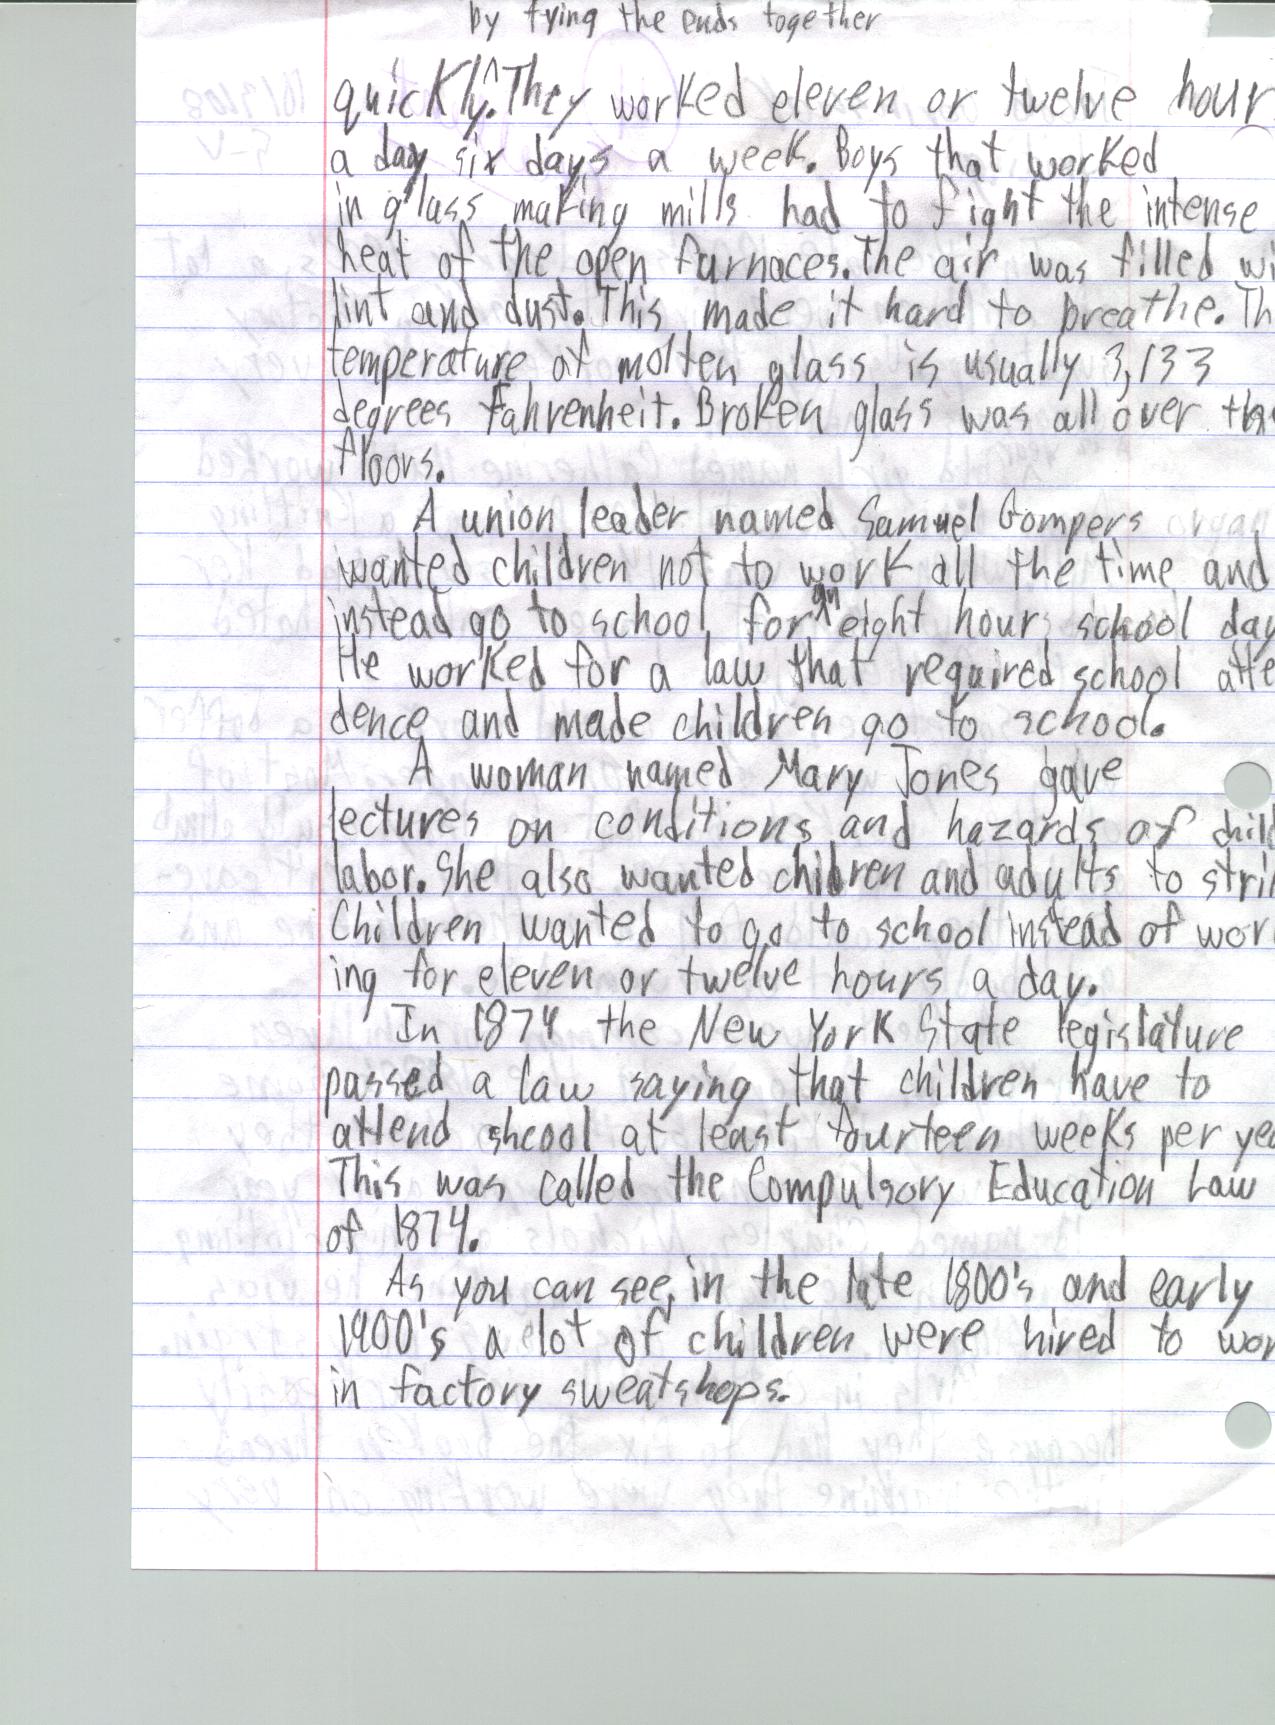 by tying the ends together
quickly^. They worked eleven or twelve hour
a day six days a week. Boys that worked
in glass making mills had to fight the intense
heat of the open furnaces. The air was filled wi
lint and dust. This made it hard to breathe. Th
temperature of molten glass is usually 3,133
degrees Fahrenheit. Broken glass was all over the
floors.
A union leader named Samuel Gompers organ
wanted children not to work all the time and
instead go to school for an eight hour school day
He worked for a law that required school atte
dence and made children go to school.
A woman named Mary Jones gave
lectures on conditions and hazards of child
labor. She also wanted children and adults to stri
Children wanted to go to school instead of wor
ing for eleven or twelve hours a day.
In 1874 the New York State legislature
passed a law saying that children have to
attend shcool at least fourteen weeks per yea
This was called the Compulsory Education Law
of 1874.
As you can see, in the late 1800's and early
1900's a lot of children were hired to wor
in factory sweatshops.